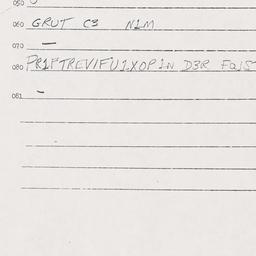 050
060 GRUT C3 NIM
070 —
080 PRIPTREVIFU1XOPIN D3R
081 -